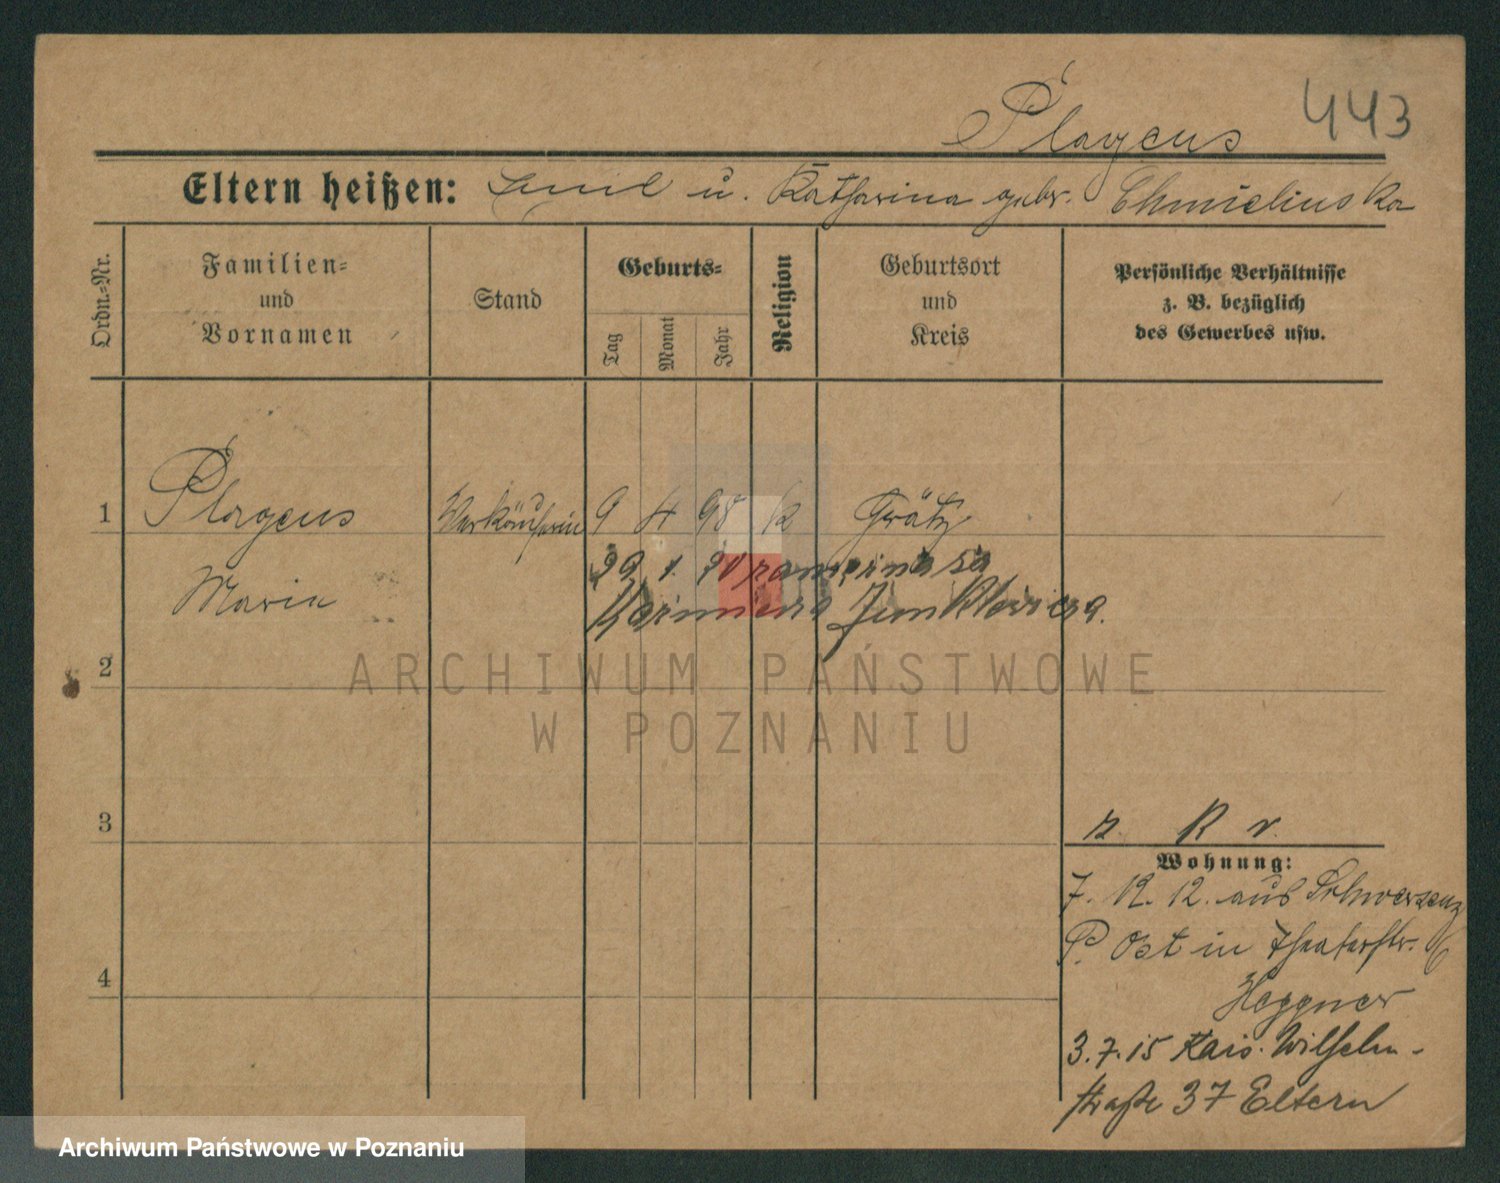 443
Plagens
Eltern heißen: Emil u. Katharina gebr. Chmielinska
Ordn.-Nr.
Familien-
und
Vornamen
Stand
Geburts-
Tag
Monat
Jahr
Religion
Geburtsort
und
Kreis
Persönliche Verhältnisse
z. B. bezüglich
des Gewerbes usw.
1 Plagens Verkäuferin 9 4 98 k Grätz
29 1. 20
Maria Kazimierz
2
ARCHIWUM PAŃSTWOWE
W POZNANIU
3
k. K v.
Wohnung:
7. 12. 12. aus Schwersenz
P. Ost in Theaterstr. 6
Heppner
4
3.7.15 Kais. Wilhelm-
straße 37 Eltern
Archiwum Państwowe w Poznaniu